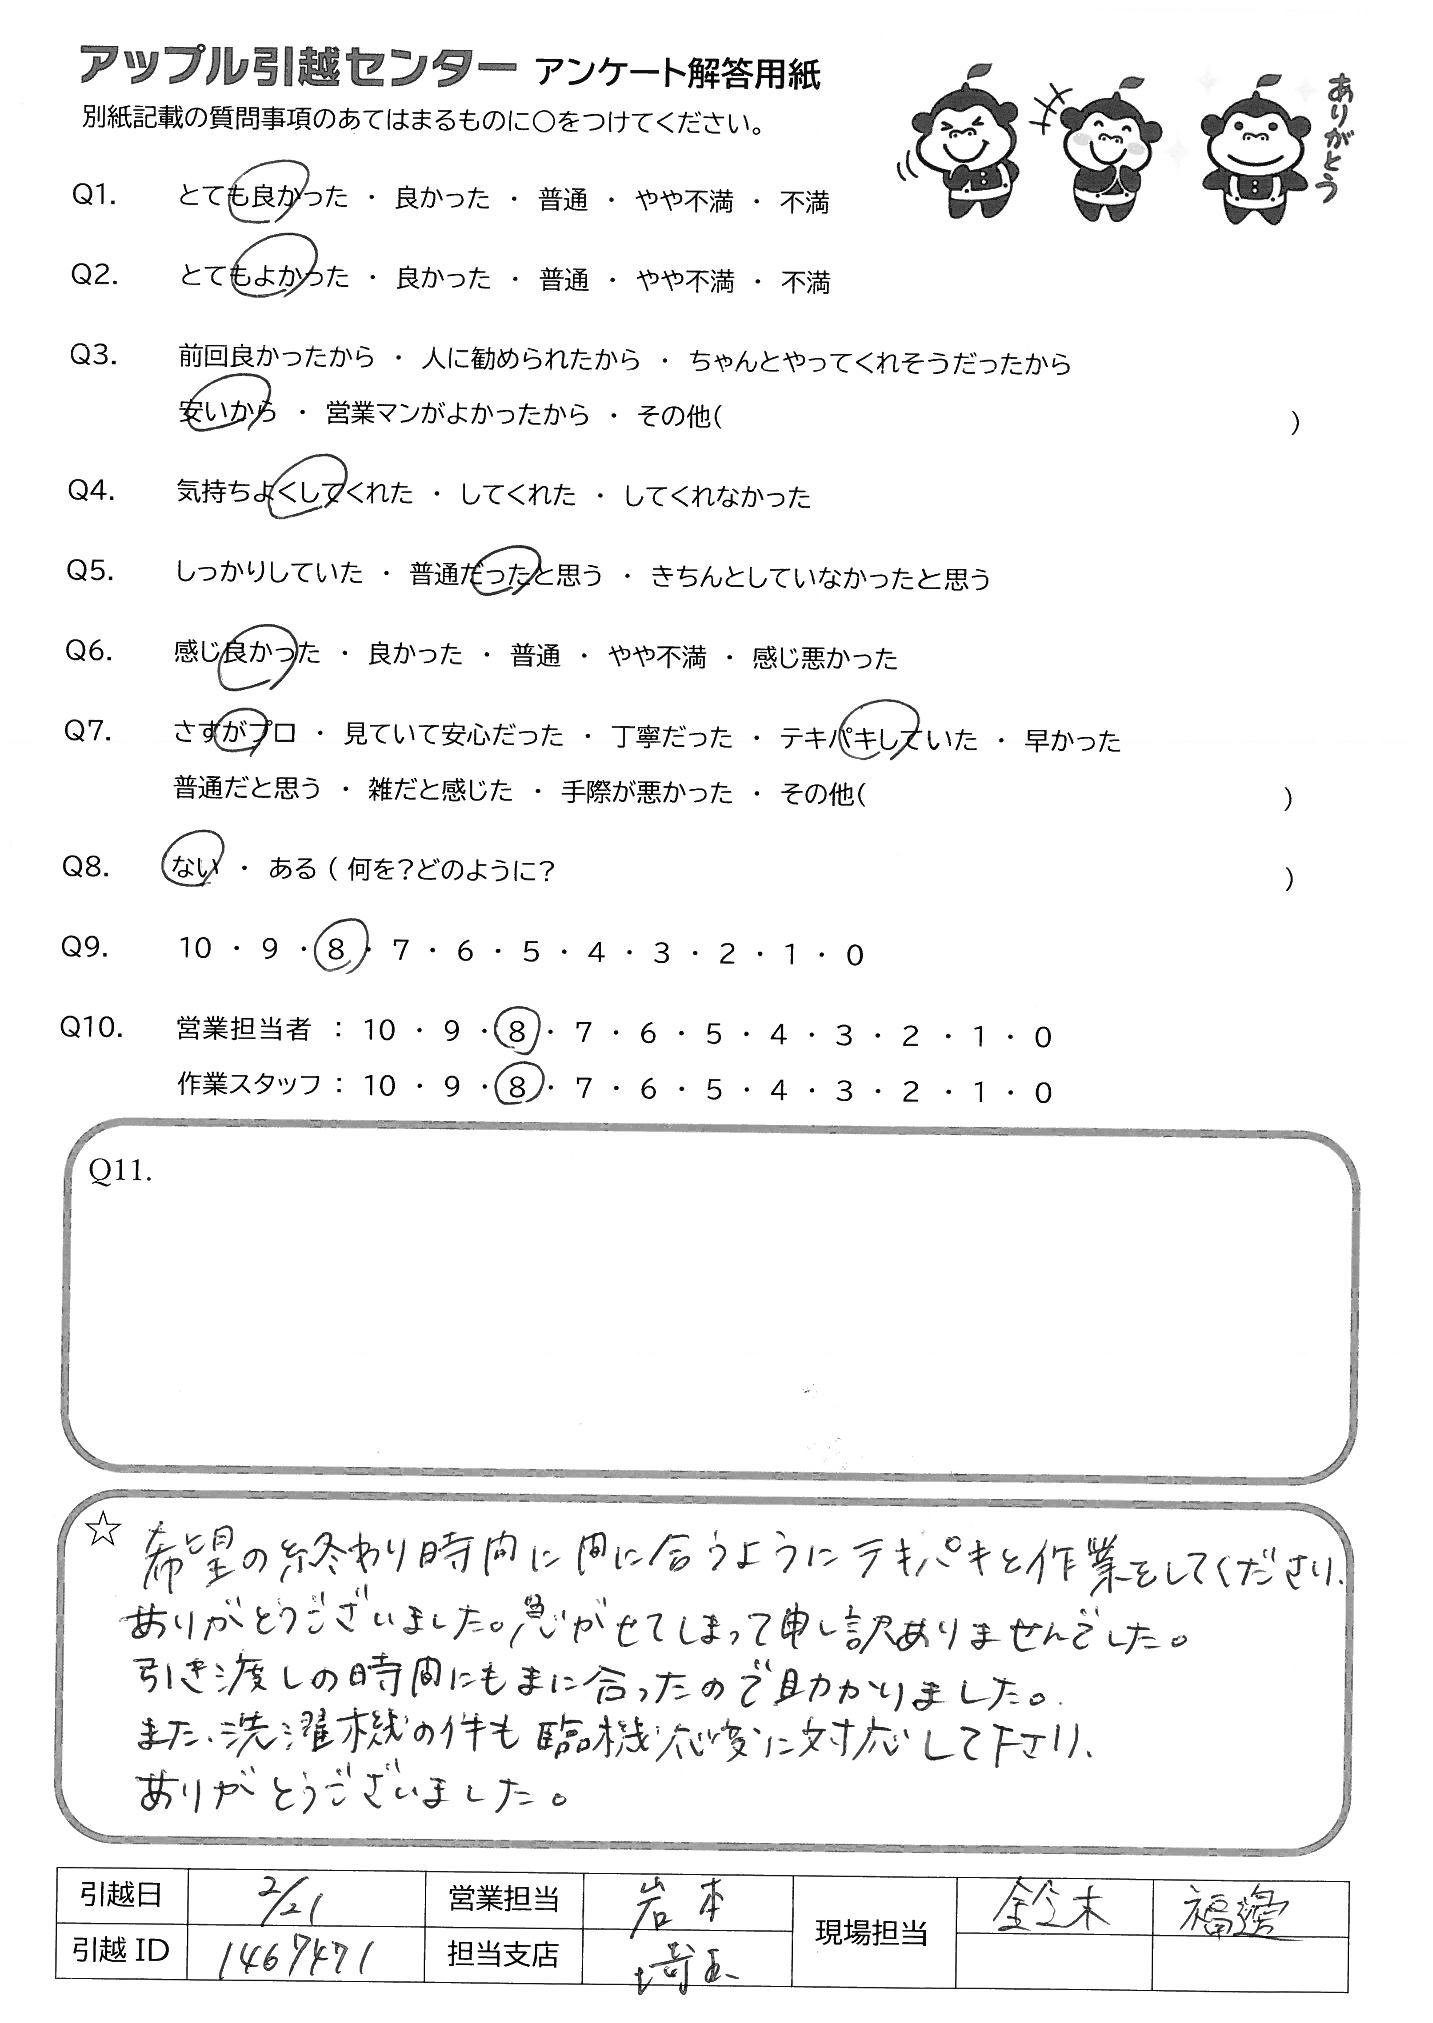 アップル引越センター アンケート解答用紙
別紙記載の質問事項のあてはまるものに○をつけてください。
ありがとう
Q1. とても良かった ・ 良かった ・ 普通 ・ やや不満 ・ 不満
Q2. とてもよかった ・ 良かった ・ 普通 ・ やや不満 ・ 不満
Q3. 前回良かったから ・ 人に勧められたから ・ ちゃんとやってくれそうだったから
安いから ・ 営業マンがよかったから ・ その他( )
Q4. 気持ちよくしてくれた ・ してくれた ・ してくれなかった
Q5. しっかりしていた ・ 普通だったと思う ・ きちんとしていなかったと思う
Q6. 感じ良かった ・ 良かった ・ 普通 ・ やや不満 ・ 感じ悪かった
Q7. さすがプロ ・ 見ていて安心だった ・ 丁寧だった ・ テキパキしていた ・ 早かった
普通だと思う ・ 雑だと感じた ・ 手際が悪かった ・ その他( )
Q8. ない ・ ある ( 何を?どのように? )
Q9. 10 ・ 9 ・ 8 ・ 7 ・ 6 ・ 5 ・ 4 ・ 3 ・ 2 ・ 1 ・ 0
Q10. 営業担当者 : 10 ・ 9 ・ 8 ・ 7 ・ 6 ・ 5 ・ 4 ・ 3 ・ 2 ・ 1 ・ 0
作業スタッフ : 10 ・ 9 ・ 8 ・ 7 ・ 6 ・ 5 ・ 4 ・ 3 ・ 2 ・ 1 ・ 0
Q11.
☆ 希望の終わり時間に間に合うようにテキパキと作業をしてくださり、
ありがとうございました。急がせてしまって申し訳ありませんでした。
引き渡しの時間にもまに合ったので助かりました。
また、洗濯機の件も臨機応変に対応して下さり、
ありがとうございました。
引越日 2/21 営業担当 岩本 現場担当 鈴木 福邉
引越ID 1467471 担当支店 埼玉